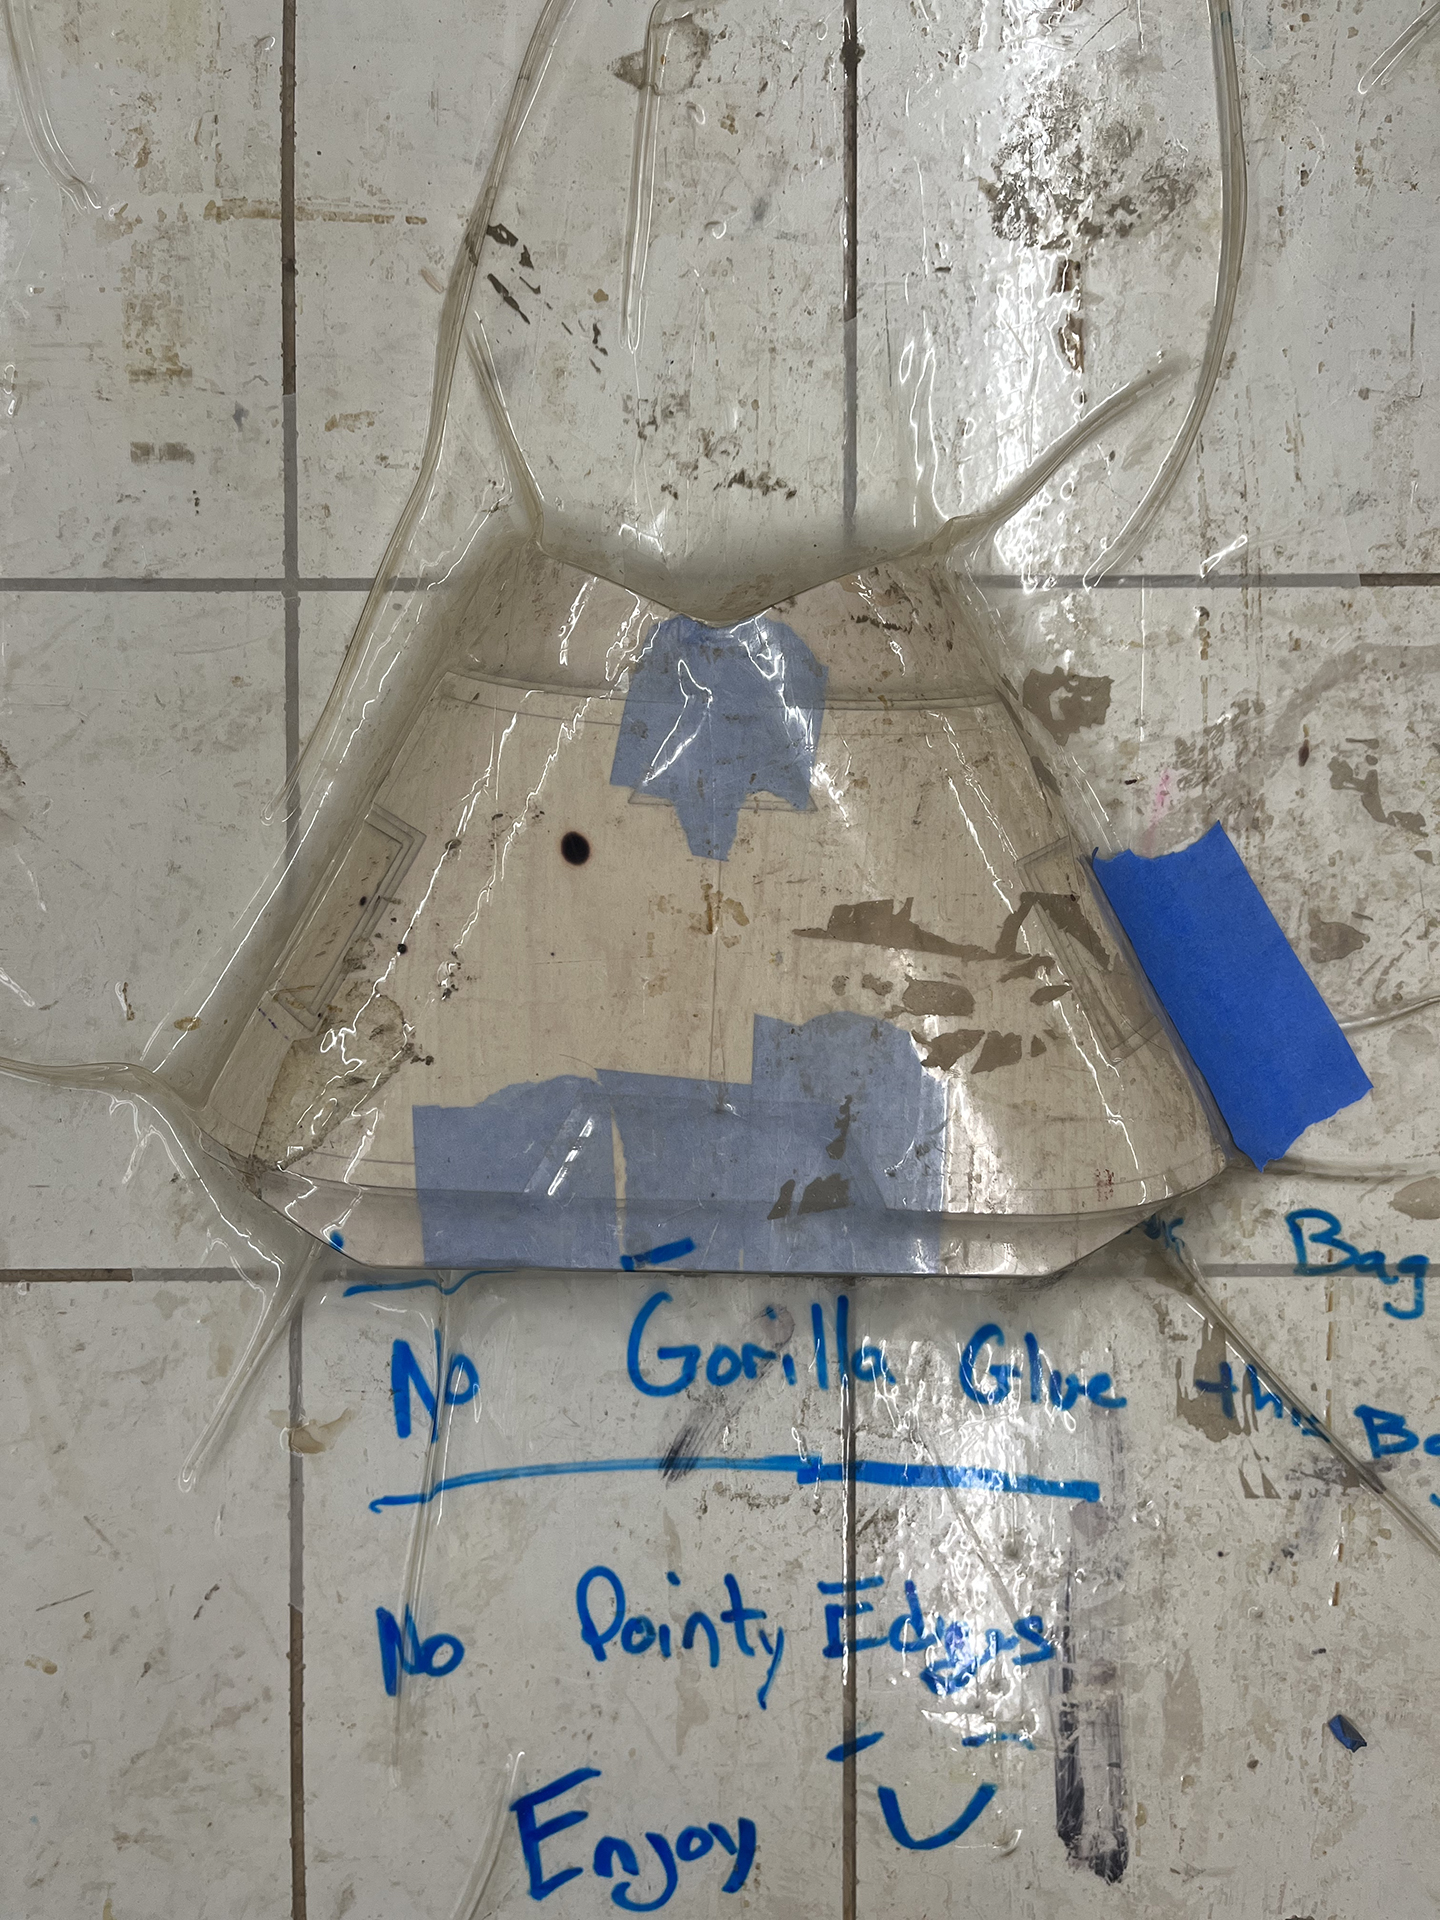 Bag
No Gorilla Glue this
No Pointy Edges
Enjoy